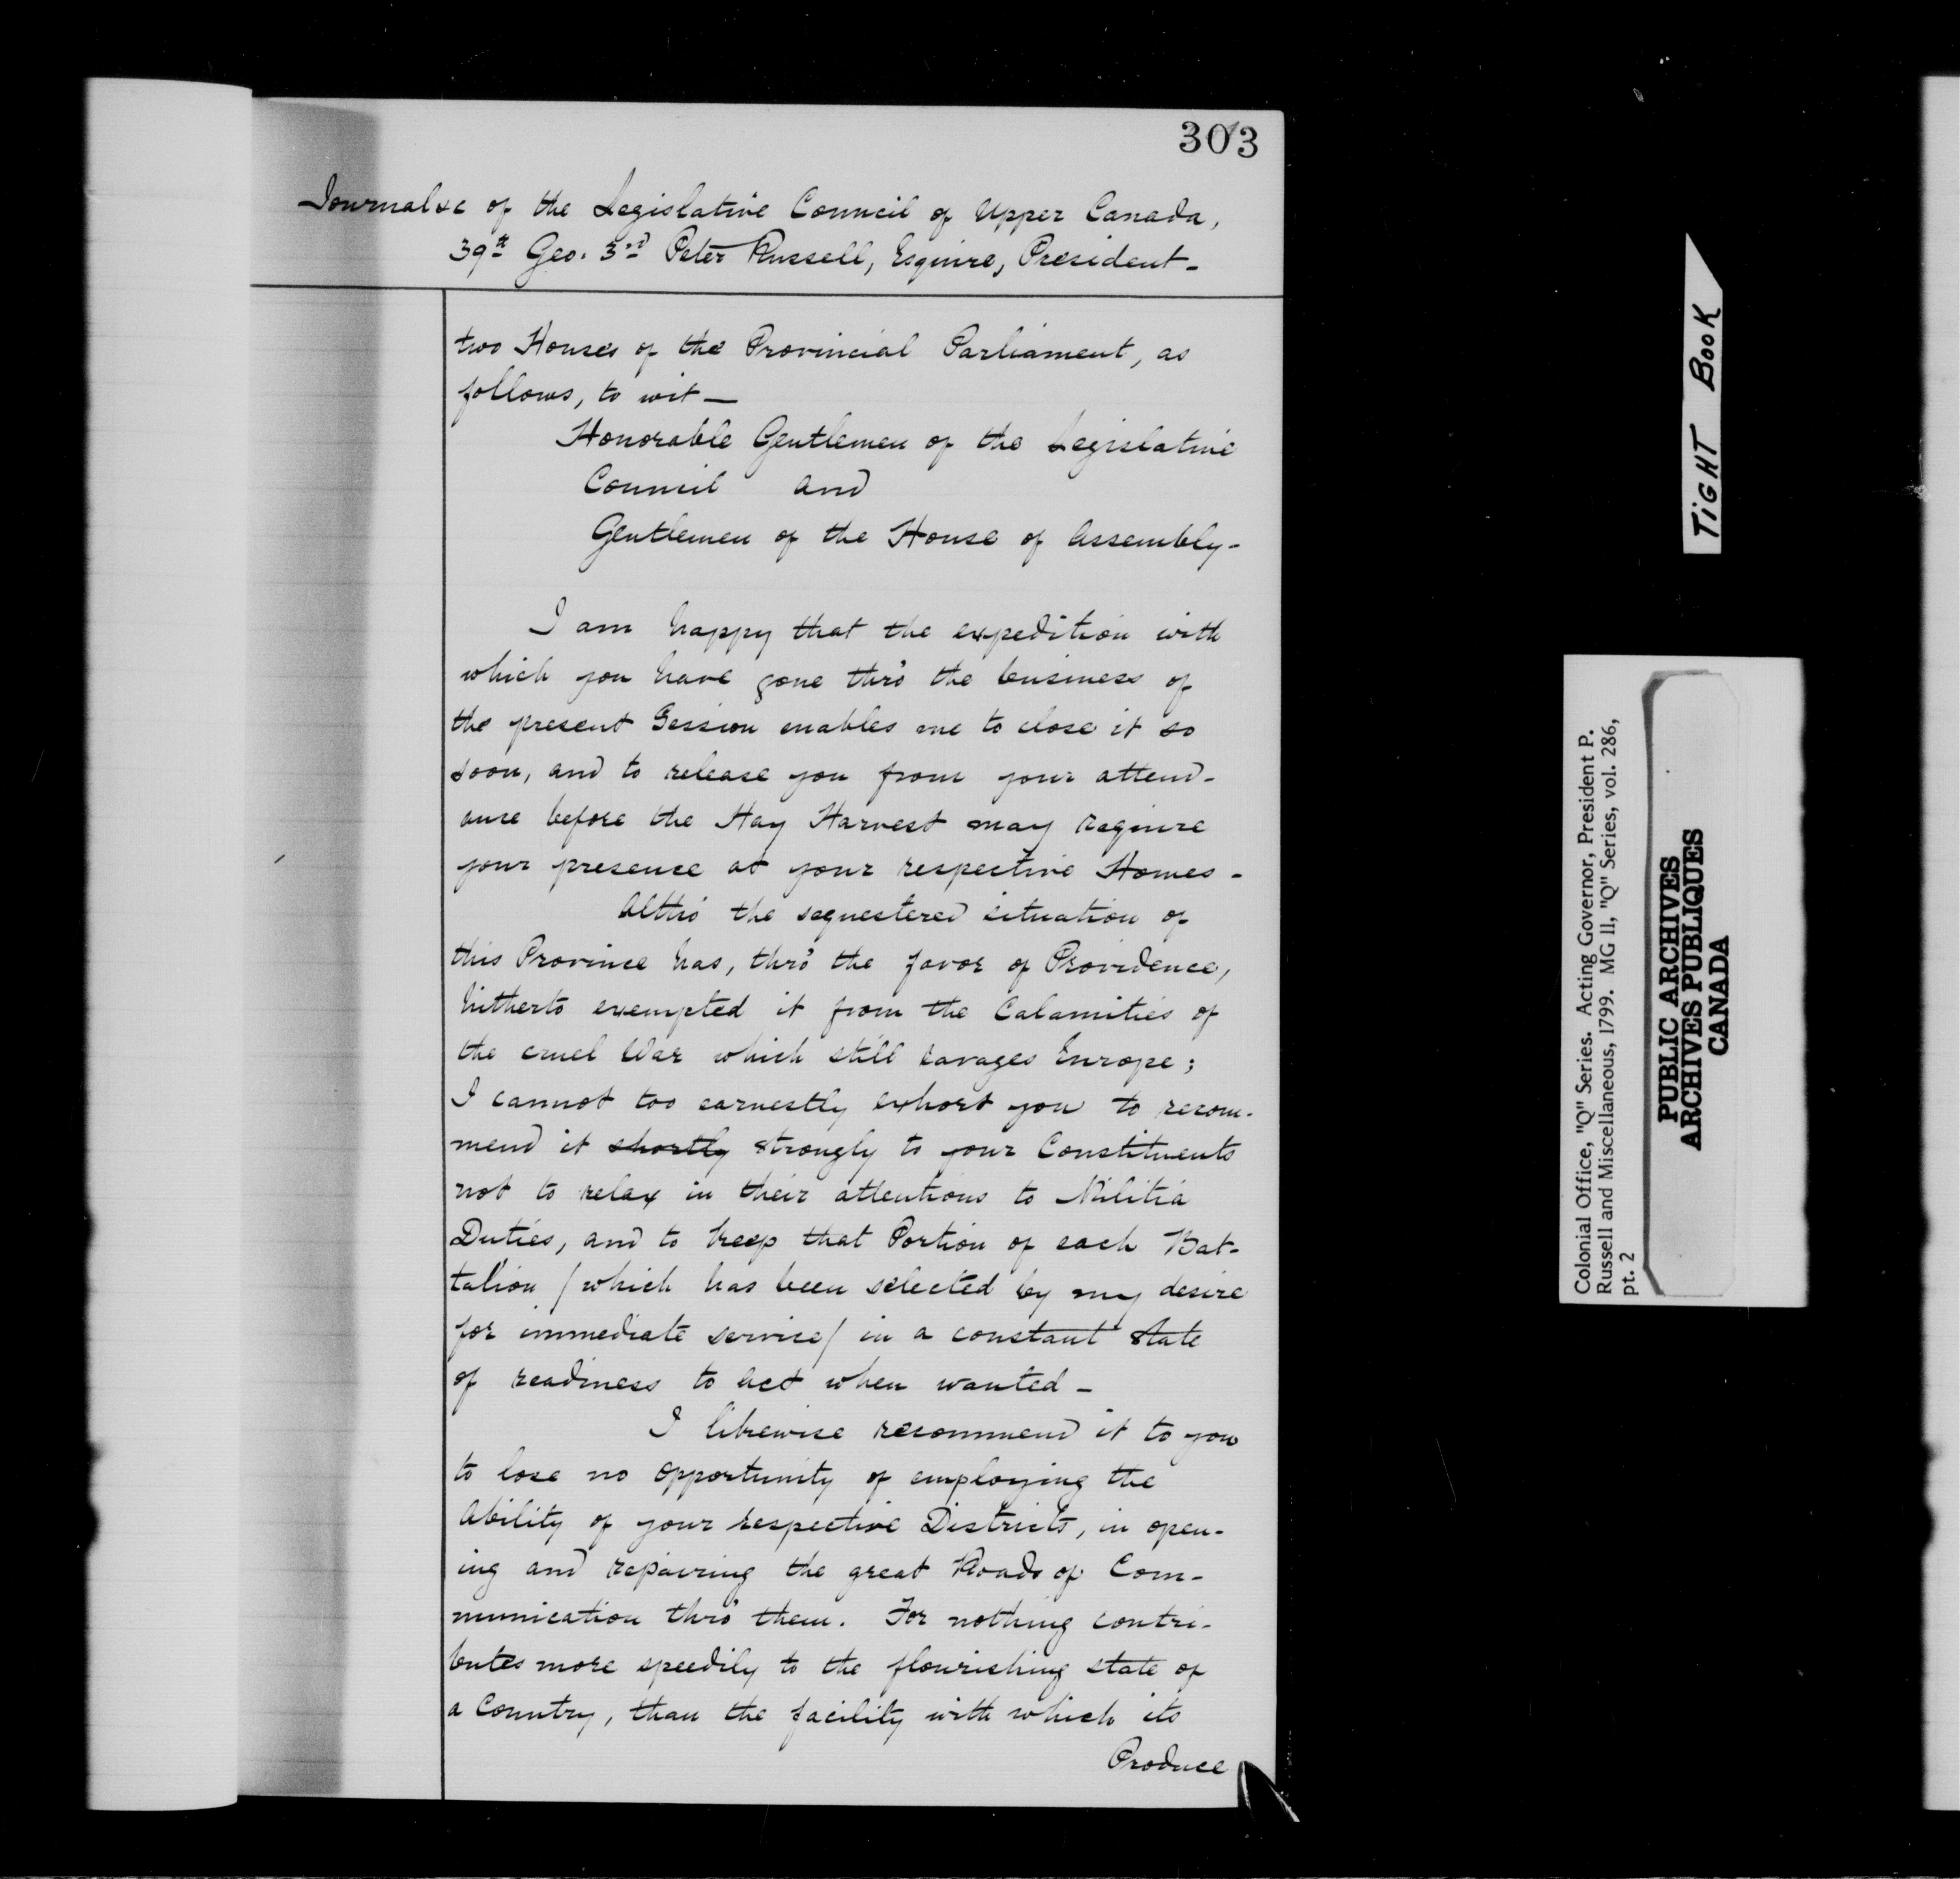 303
Journal &c of the Legislative Council of Upper Canada,
39th Geo. 3rd Peter Russell, Esquire, President-
two Houses of the Provincial Parliament, as
follows, to wit—
Honorable Gentlemen of the Legislative
Council and
Gentlemen of the House of Assembly-
I am happy that the expedition with
which you have gone thro' the business of
the present Session enables me to close it so
soon, and to release you from your attend-
ance before the Hay Harvest may require
your presence at your respective Homes-
Altho' the sequestered situation of
this Province has, thro' the favor of Providence,
hitherto exempted it from the Calamities of
the cruel War which still ravages Europe;
I cannot too earnestly exhort you to recom-
mend it shortly strongly to your Constituents
not to relax in their attentions to Militia
Duties, and to keep that Portion of each Bat-
talion / which has been selected by my desire
for immediate service / in a constant state
of readiness to act when wanted-
I likewise recommend it to you
to lose no opportunity of employing the
Ability of your respective Districts, in open-
ing and repairing the great Roads of Com-
munication thro' them. For nothing contri-
butes more speedily to the flourishing state of
a Country, than the facility with which its
Produce
TIGHT BOOK
Colonial Office, "Q" Series. Acting Governor, President P.
Russell and Miscellaneous, 1799. MG 11, "Q" Series, vol. 286,
pt. 2
PUBLIC ARCHIVES
ARCHIVES PUBLIQUES
CANADA